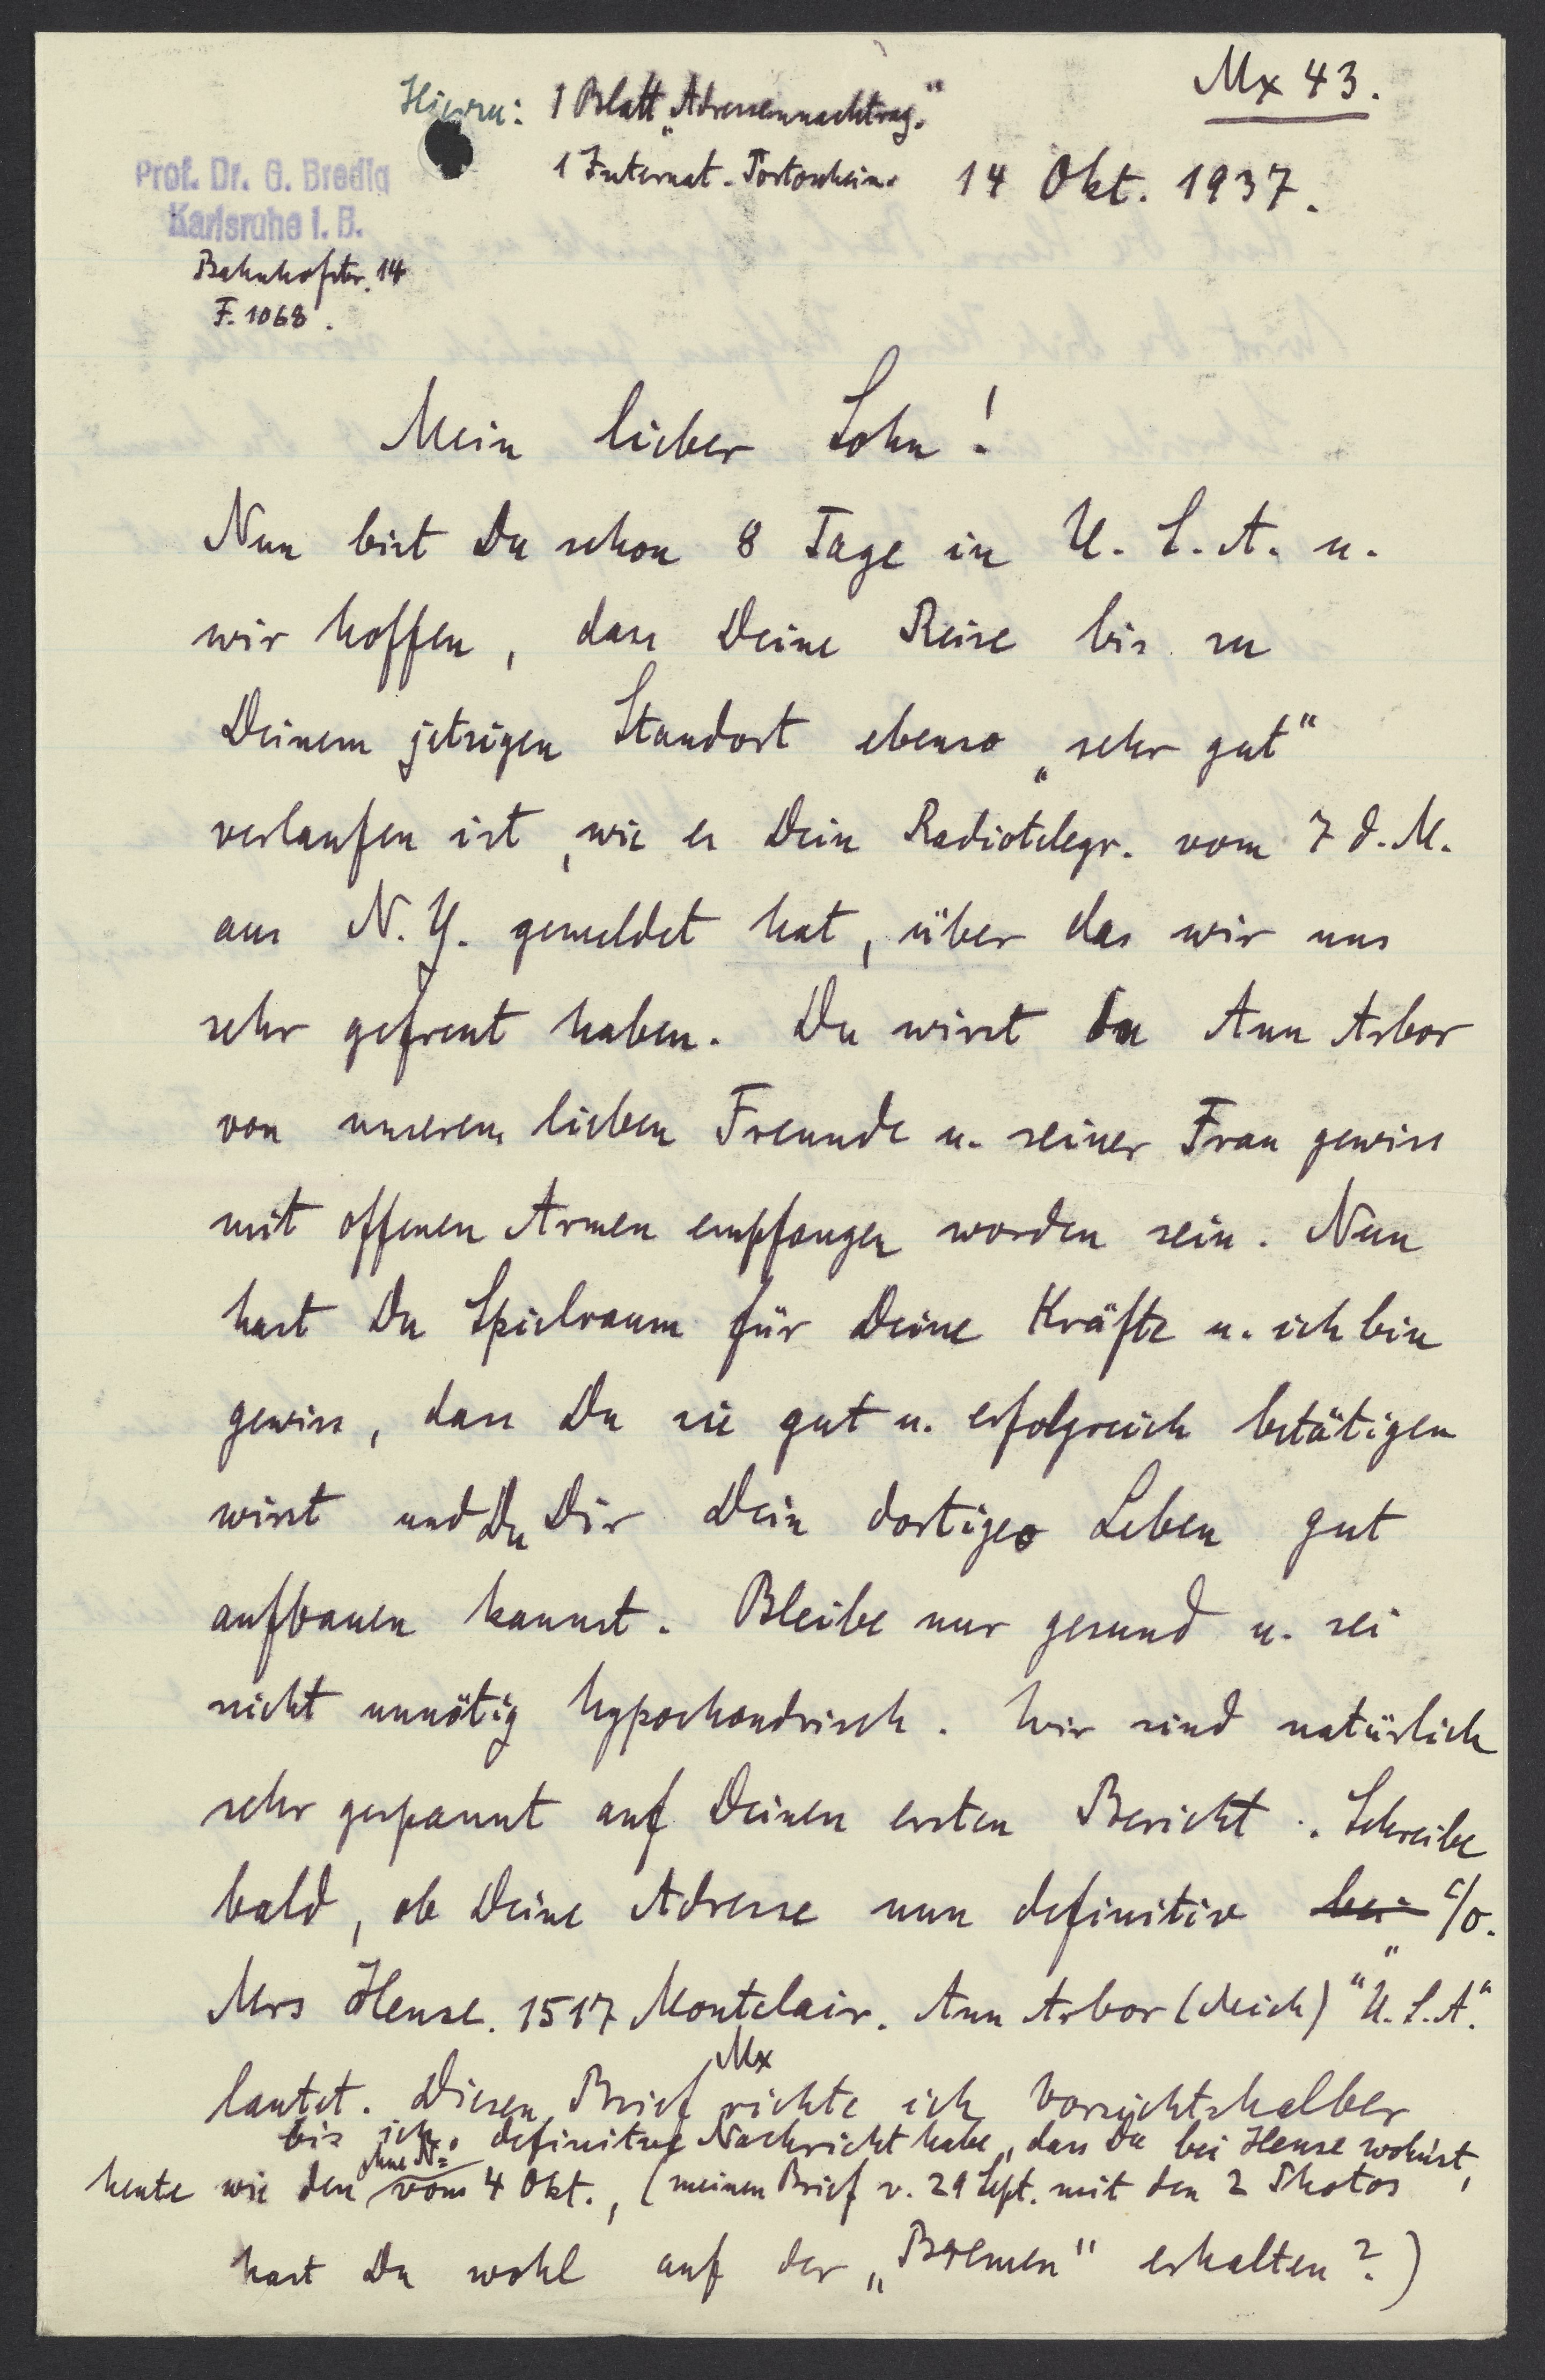 Mx 43.
Hierzu: 1 Blatt „Adressennachtrag."
1 Internat. Portoschein.
14 Okt. 1937.
Prof. Dr. G. Bredig
Karlsruhe i. B.
Bahnhofstr. 14
F. 1068.
Mein lieber Sohn!
Nun bist Du schon 8 Tage in U. S. A. u.
wir hoffen, dass Deine Reise bis zu
Deinem jetzigen Standort ebenso „sehr gut"
verlaufen ist, wie es Dein Radiotelegr. vom 7 d. M.
aus N. Y. gemeldet hat, über das wir uns
sehr gefreut haben. Du wirst in Ann Arbor
von unserem lieben Freunde u. seiner Frau gewiss
mit offenen Armen empfangen worden sein. Nun
hast Du Spielraum für Deine Kräfte u. ich bin
gewiss, dass Du sie gut u. erfolgreich betätigen
wirst und Du Dir Dein dortiges Leben gut
aufbauen kannst. Bleibe nur gesund u. sei
nicht unnötig hypochondrisch. Wir sind natürlich
sehr gespannt auf Deinen ersten Bericht. Schreibe
bald, ob Deine Adresse nun definitiv bei c/o.
Mrs Hense. 1517 Montclair. Ann Arbor (Mich) "U.S.A."
lautet. Diesen Brief Mx richte ich vorsichtshalber
bis ich definitive Nachricht habe, dass Du bei Hense wohnst,
heute wie den ohne No vom 4 Okt., (meinen Brief v. 29 Sept. mit den 2 Photos
hast Du wohl auf der „Bremen" erhalten?)